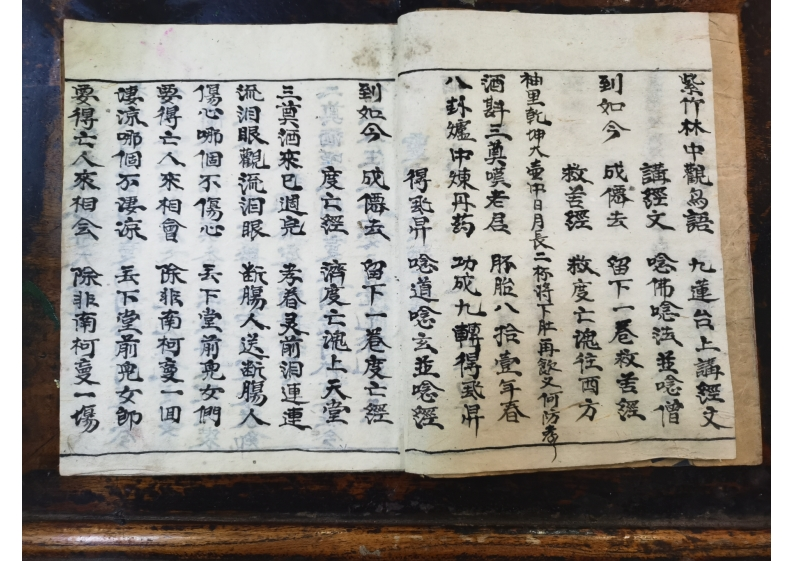 紫竹林中觀鳥語 九蓮台上講經文
講經文 唸佛唸法並唸僧
到如今 成僊去 留下一卷救苦經
救苦經 救度亡魂往西方
袖里乾坤大 壺中日月長 二杯將下肚 再飲又何防
酒斟三奠嘆老君 胚胎八拾壹年春
八卦爐中煉丹药 功成九轉得飛昇
得飛昇 唸道唸玄並唸經
到如今 成僊去 留下一卷度亡經
度亡經 濟度亡魂上天堂
三奠酒來已週完 孝眷灵前泪連連
流泪眼觀流泪眼 断腸人送断腸人
傷心哪個不傷心 丟下堂前兒女們
要得亡人來相會 除非南柯夢一回
凄凉哪個不凄凉 丟下堂前兒女郎
要得亡人來相会 除非南柯夢一場